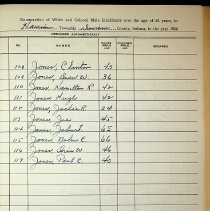 Enumeration of White and Colored Male Inhabitants over the age of 21 years, in
Harrison Township County, Indiana, in the year 1932
ARRANGED ALPHABETICALLY
NO. NAMES REMARKS
108 Jones, Clinton 43
109 Jones, W. 36
110 Jones, Hamilton R 42
111 Jones, Hugh 42
112 Jones, R 24
113 Jones, Joe 45
114 Jones, 65
115 Jones, E. 66
116 Jones, W 46
117 Jones, Paul E. 40